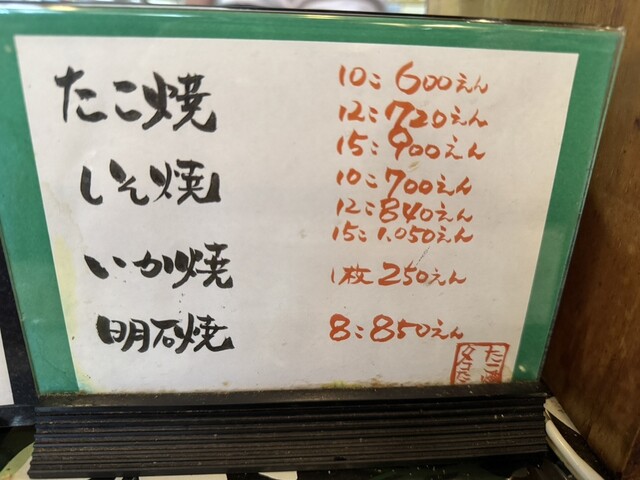 たこ焼
10こ 600えん
12こ 720えん
15こ 900えん
いそ焼
10こ 700えん
12こ 840えん
15こ 1,050えん
いか焼
1枚 250えん
明石焼
8こ 850えん